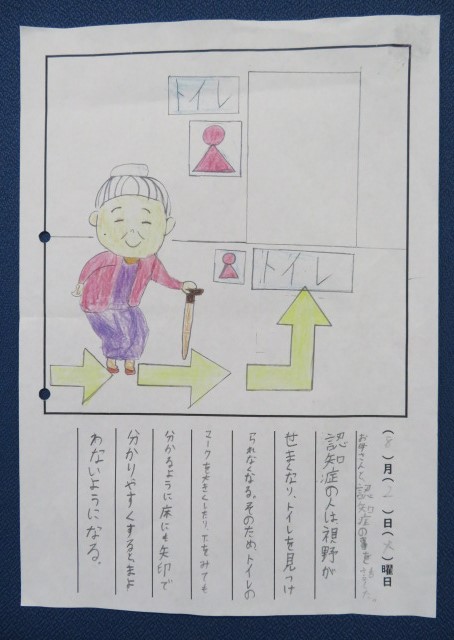 トイレ
トイレ
(8)月(2)日(火)曜日
お母さんと認知症の事を
認知症の人は、視野が
せまくなり、トイレを見つけ
られなくなる。そのため、トイレの
マークを大きくしたり、下をみても
分かるように床にも矢印で
分かりやすくするとまよ
わないようになる。